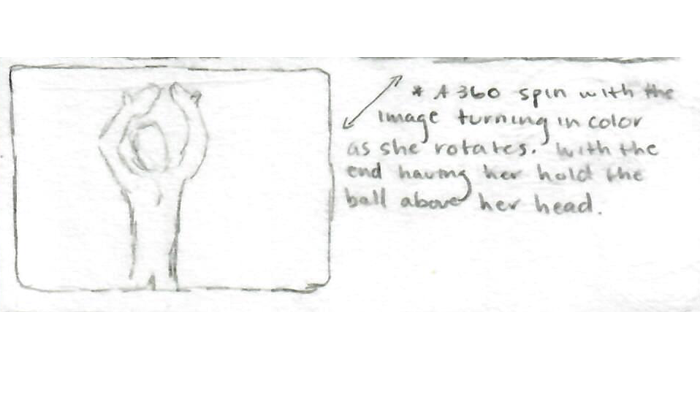 * A 360 spin with the
image turning in color
as she rotates. With the
end having her hold the
ball above her head.